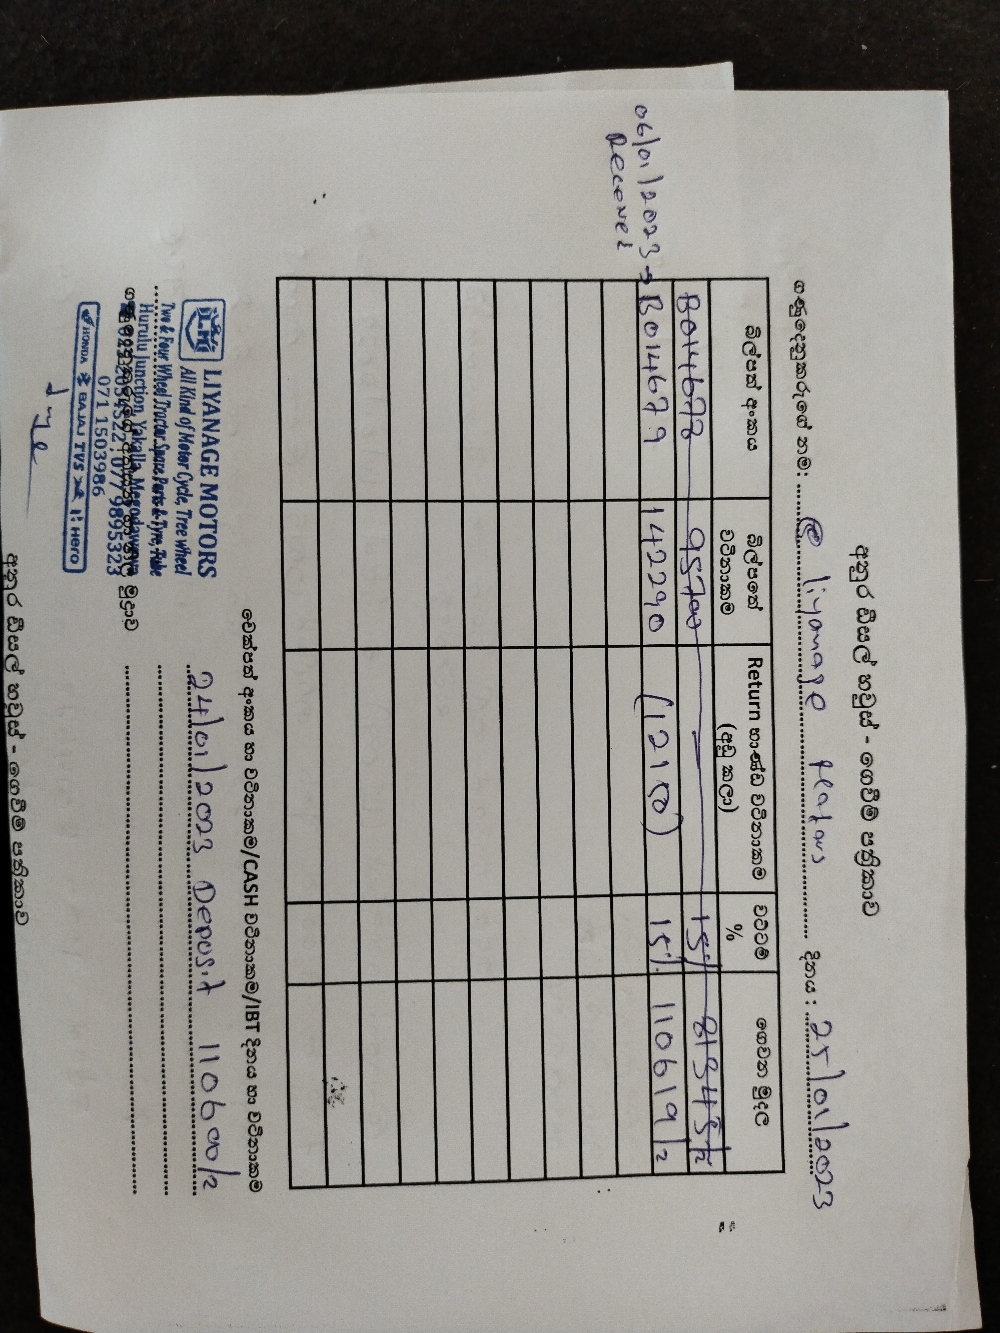 අනුර ඩීසල් හවුස් - ගෙවීම් පත්‍රිකාව
ගනුදෙනුකරුගේ නම: @ Liyanage Motors දිනය: 25/01/2023
බිල්පත් අංකය බිල්පතේ වටිනාකම Return භාණ්ඩ වටිනාකම (අඩු කලා) වට්ටම් % ගෙවන මුදල
B014678 95700 — 15% 81345/=
06/01/2023 → B014679 142290 (12100) 15% 110619/=
Received
චෙක්පත් අංකය හා වටිනාකම/CASH වටිනාකම/IBT දිනය හා වටිනාකම
24/01/2023 Deposit 110600/=
LIYANAGE MOTORS
All Kind of Motor Cycle, Tree wheel
Two & Four Wheel Tractor Spare Parts & Tyre, Tube
Hurulu Junction, Yakalla, Meegodawewa
077 9895323
071 1503986
HONDA BAJAJ TVS Hero
අනුර ඩීසල් හවුස් - ගෙවීම් පත්‍රිකාව